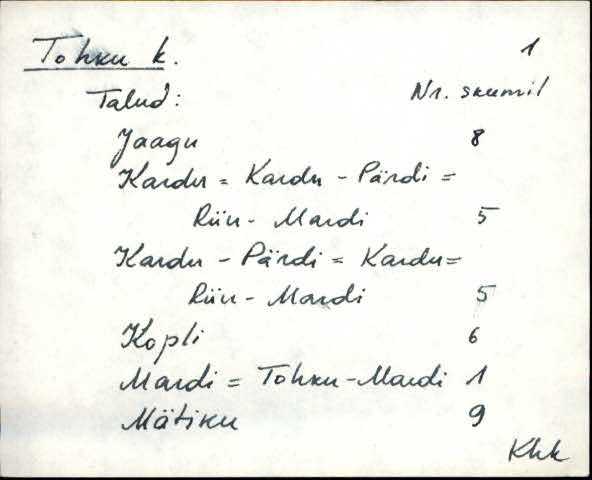 Tohku k. 1
Talud: Nr. skeemil
Jaagu 8
Kardu = Kardu - Pärdi =
Riiu - Mardi 5
Kardu - Pärdi = Kardu =
Riiu - Mardi 5
Kopli 6
Mardi = Tohku-Mardi 1
Mätiku 9
Khk